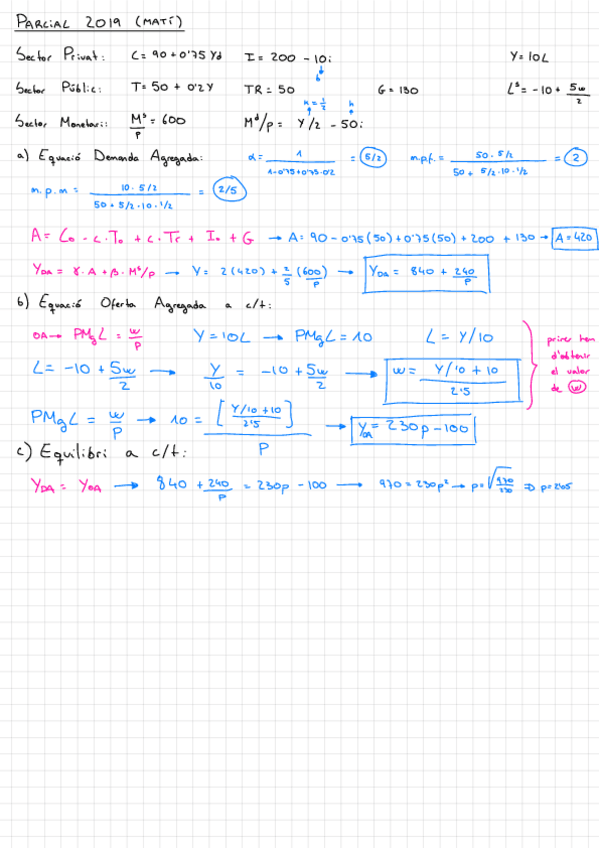 PARCIAL 2019 (MATÍ)
Sector Privat: C = 90 + 0'75 Yd I = 200 - 10i Y = 10L
b
Sector Públic: T = 50 + 0'2Y TR = 50 G = 130 Lˢ = -10 + 5w/2
k = 1/2 h
Sector Monetari: Mˢ/P = 600 Mᵈ/p = Y/2 - 50i
a) Equació Demanda Agregada: α = 1/(1-0'75+0'75·0'2) = 5/2 m.p.f. = 50·5/2/(50 + 5/2·10·1/2) = 2
m.p.m = 10·5/2/(50 + 5/2·10·1/2) = 2/5
A = C₀ - c·T₀ + c·Tr + I₀ + G → A = 90 - 0'75(50) + 0'75(50) + 200 + 130 → A = 420
Y_DA = γ·A + β·Mˢ/p → Y = 2(420) + 2/5 (600/P) → Y_DA = 840 + 240/P
b) Equació Oferta Agregada a c/t:
OA → PMgL = w/P Y = 10L → PMgL = 10 L = Y/10
L = -10 + 5w/2 → Y/10 = -10 + 5w/2 → w = (Y/10 + 10)/2'5
primer hem d'obtenir el valor de w
PMgL = w/P → 10 = [(Y/10 + 10)/2'5]/P → Y_OA = 230p - 100
c) Equilibri a c/t:
Y_DA = Y_OA → 840 + 240/P = 230p - 100 → 970 = 230p² → p = √(970/230) ⇒ p = 2'05